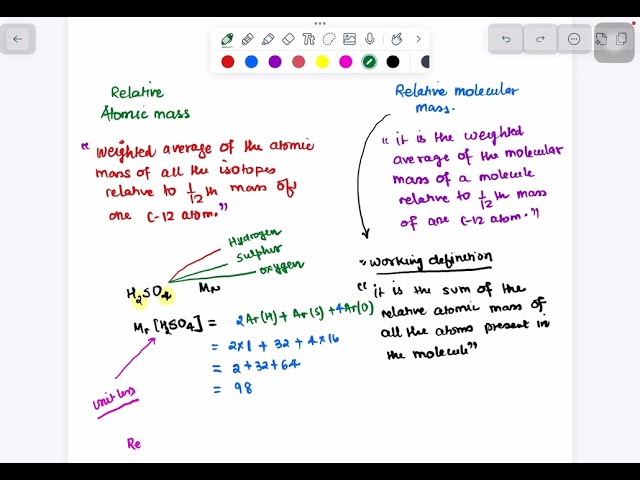 Relative
Atomic mass
" Weighted average of the atomic
mass of all the isotopes
relative to 1/12 th mass of
one C-12 atom."
Hydrogen
Sulphur
oxygen
H2SO4 Mr
Mr [H2SO4] = 2Ar(H) + Ar(S) + 4Ar(O)
= 2×1 + 32 + 4×16
= 2+32+64
= 98
unitless
Re
Relative molecular
mass.
" it is the weighted
average of the molecular
mass of a molecule
relative to 1/12 th mass
of one C-12 atom."
" Working definition
" it is the sum of the
relative atomic mass of
all the atoms present in
the molecule"